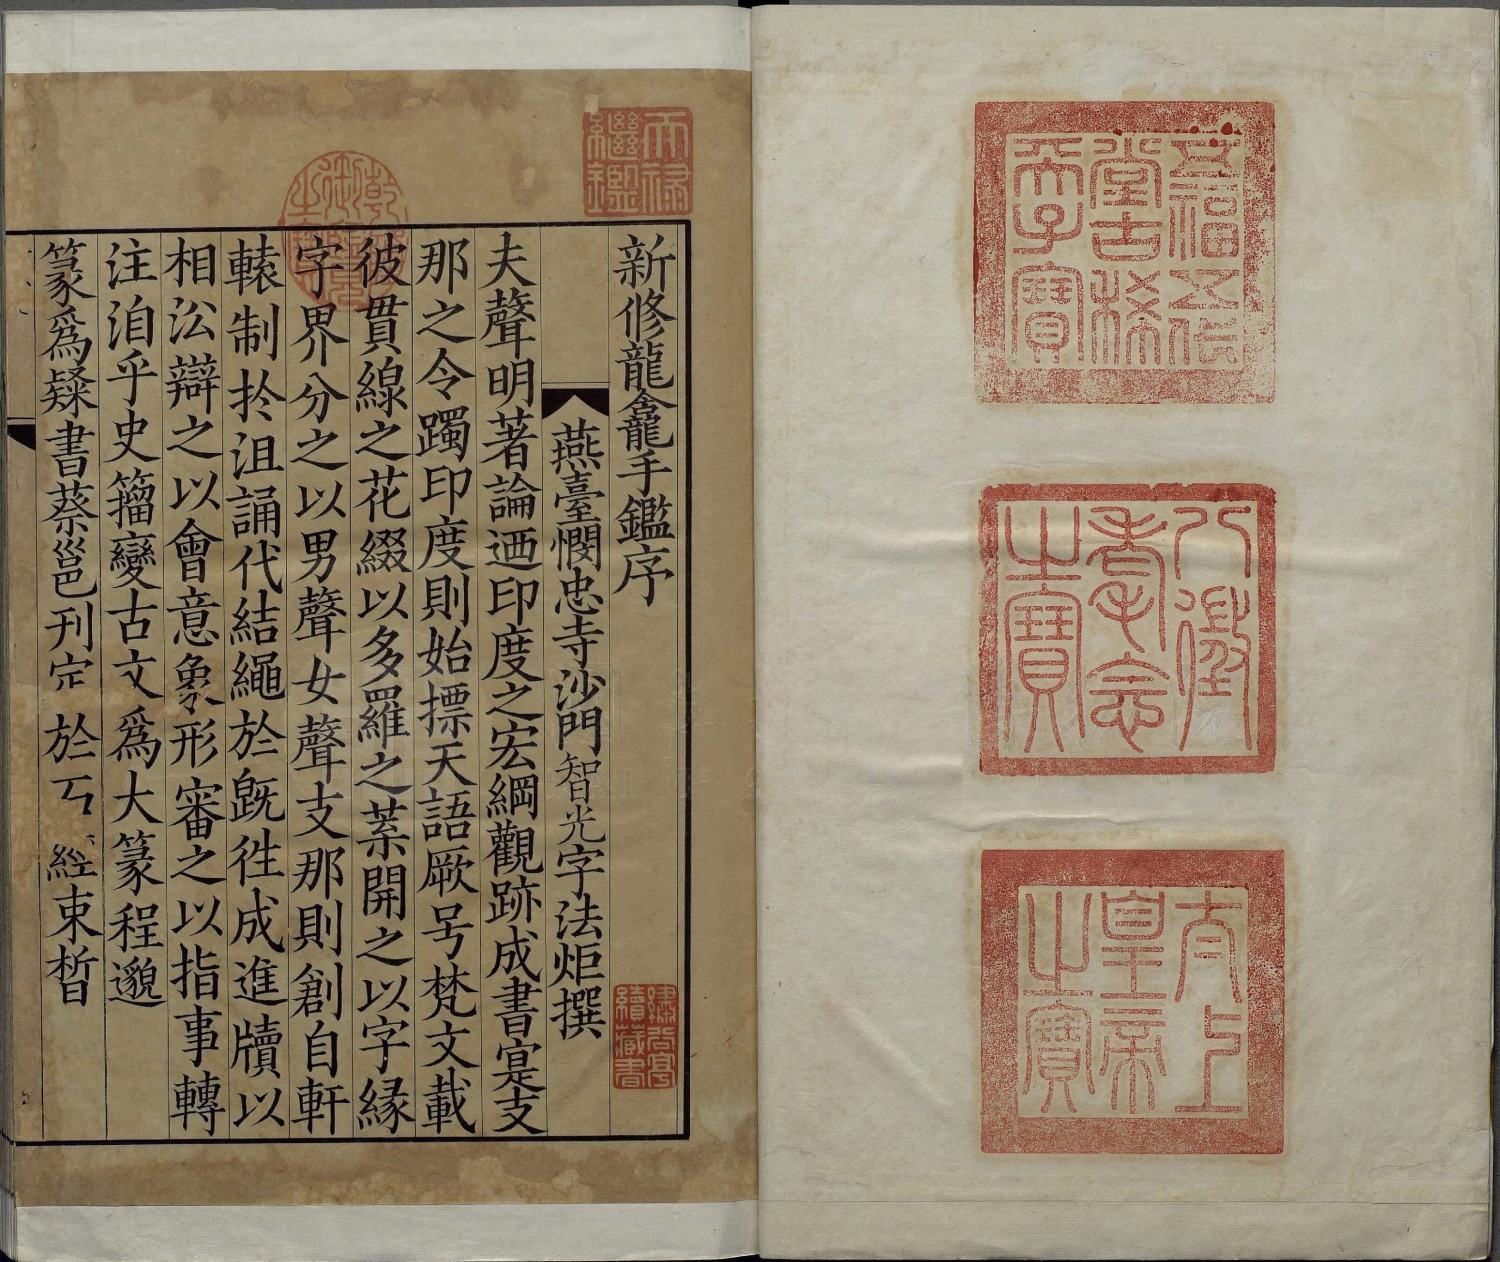 五福五代
堂古稀
天子寶
八徵
耄念
之寶
太上
皇帝
之寶
天祿
繼鑑
乾隆
御覽
之寶
新修龍龕手鑑序
燕臺憫忠寺沙門智光字法炬撰
夫聲明著論迺印度之宏綱觀跡成書寔支
那之令躅印度則始摽天語厥号梵文載
彼貫線之花綴以多羅之葉開之以字緣
字界分之以男聲女聲支那則創自軒
轅制扵沮誦代結繩於既徃成進牘以
相沿辯之以會意象形審之以指事轉
注洎乎史籀變古文爲大篆程邈
篆爲䟽書蔡邕刊定於 經束晳
續藏書